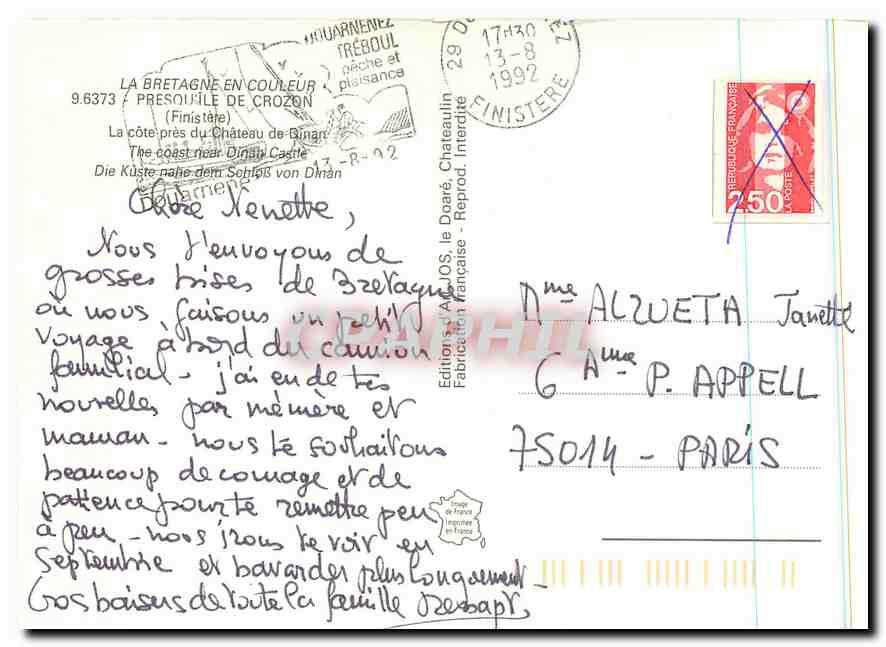 DOUARNENEZ
TRÉBOUL
pêche et
plaisance
13-8-92
Douarnenez
29 DO
17H30
13-8
1992
FINISTERE
LA BRETAGNE EN COULEUR
9.6373 - PRESQU'ILE DE CROZON
(Finistère)
La côte près du Château de Dinan
The coast near Dinan Castle
Die Küste nahe dem Schloß von Dinan
Chère Nenette,
Nous t'envoyons de
grosses bises de Bretagne
où nous faisons un petit
voyage à bord du camion
familial - j'ai eu de tes
nouvelles par mémère et
maman - nous te souhaitons
beaucoup de courage et de
patience pour te remettre peu
à peu - nous irons te voir en
Septembre et bavarder plus longuement -
Gros baisers de toute la famille
Editions d'Art JOS, le Doaré, Chateaulin
Fabrication Française - Reprod. Interdite
CPAPHIL
REPUBLIQUE FRANÇAISE
2,50
LA POSTE
Mme ALZUETA Janette
6 Ame P. APPELL
75014 - PARIS
Image
de France
Imprimée
en France